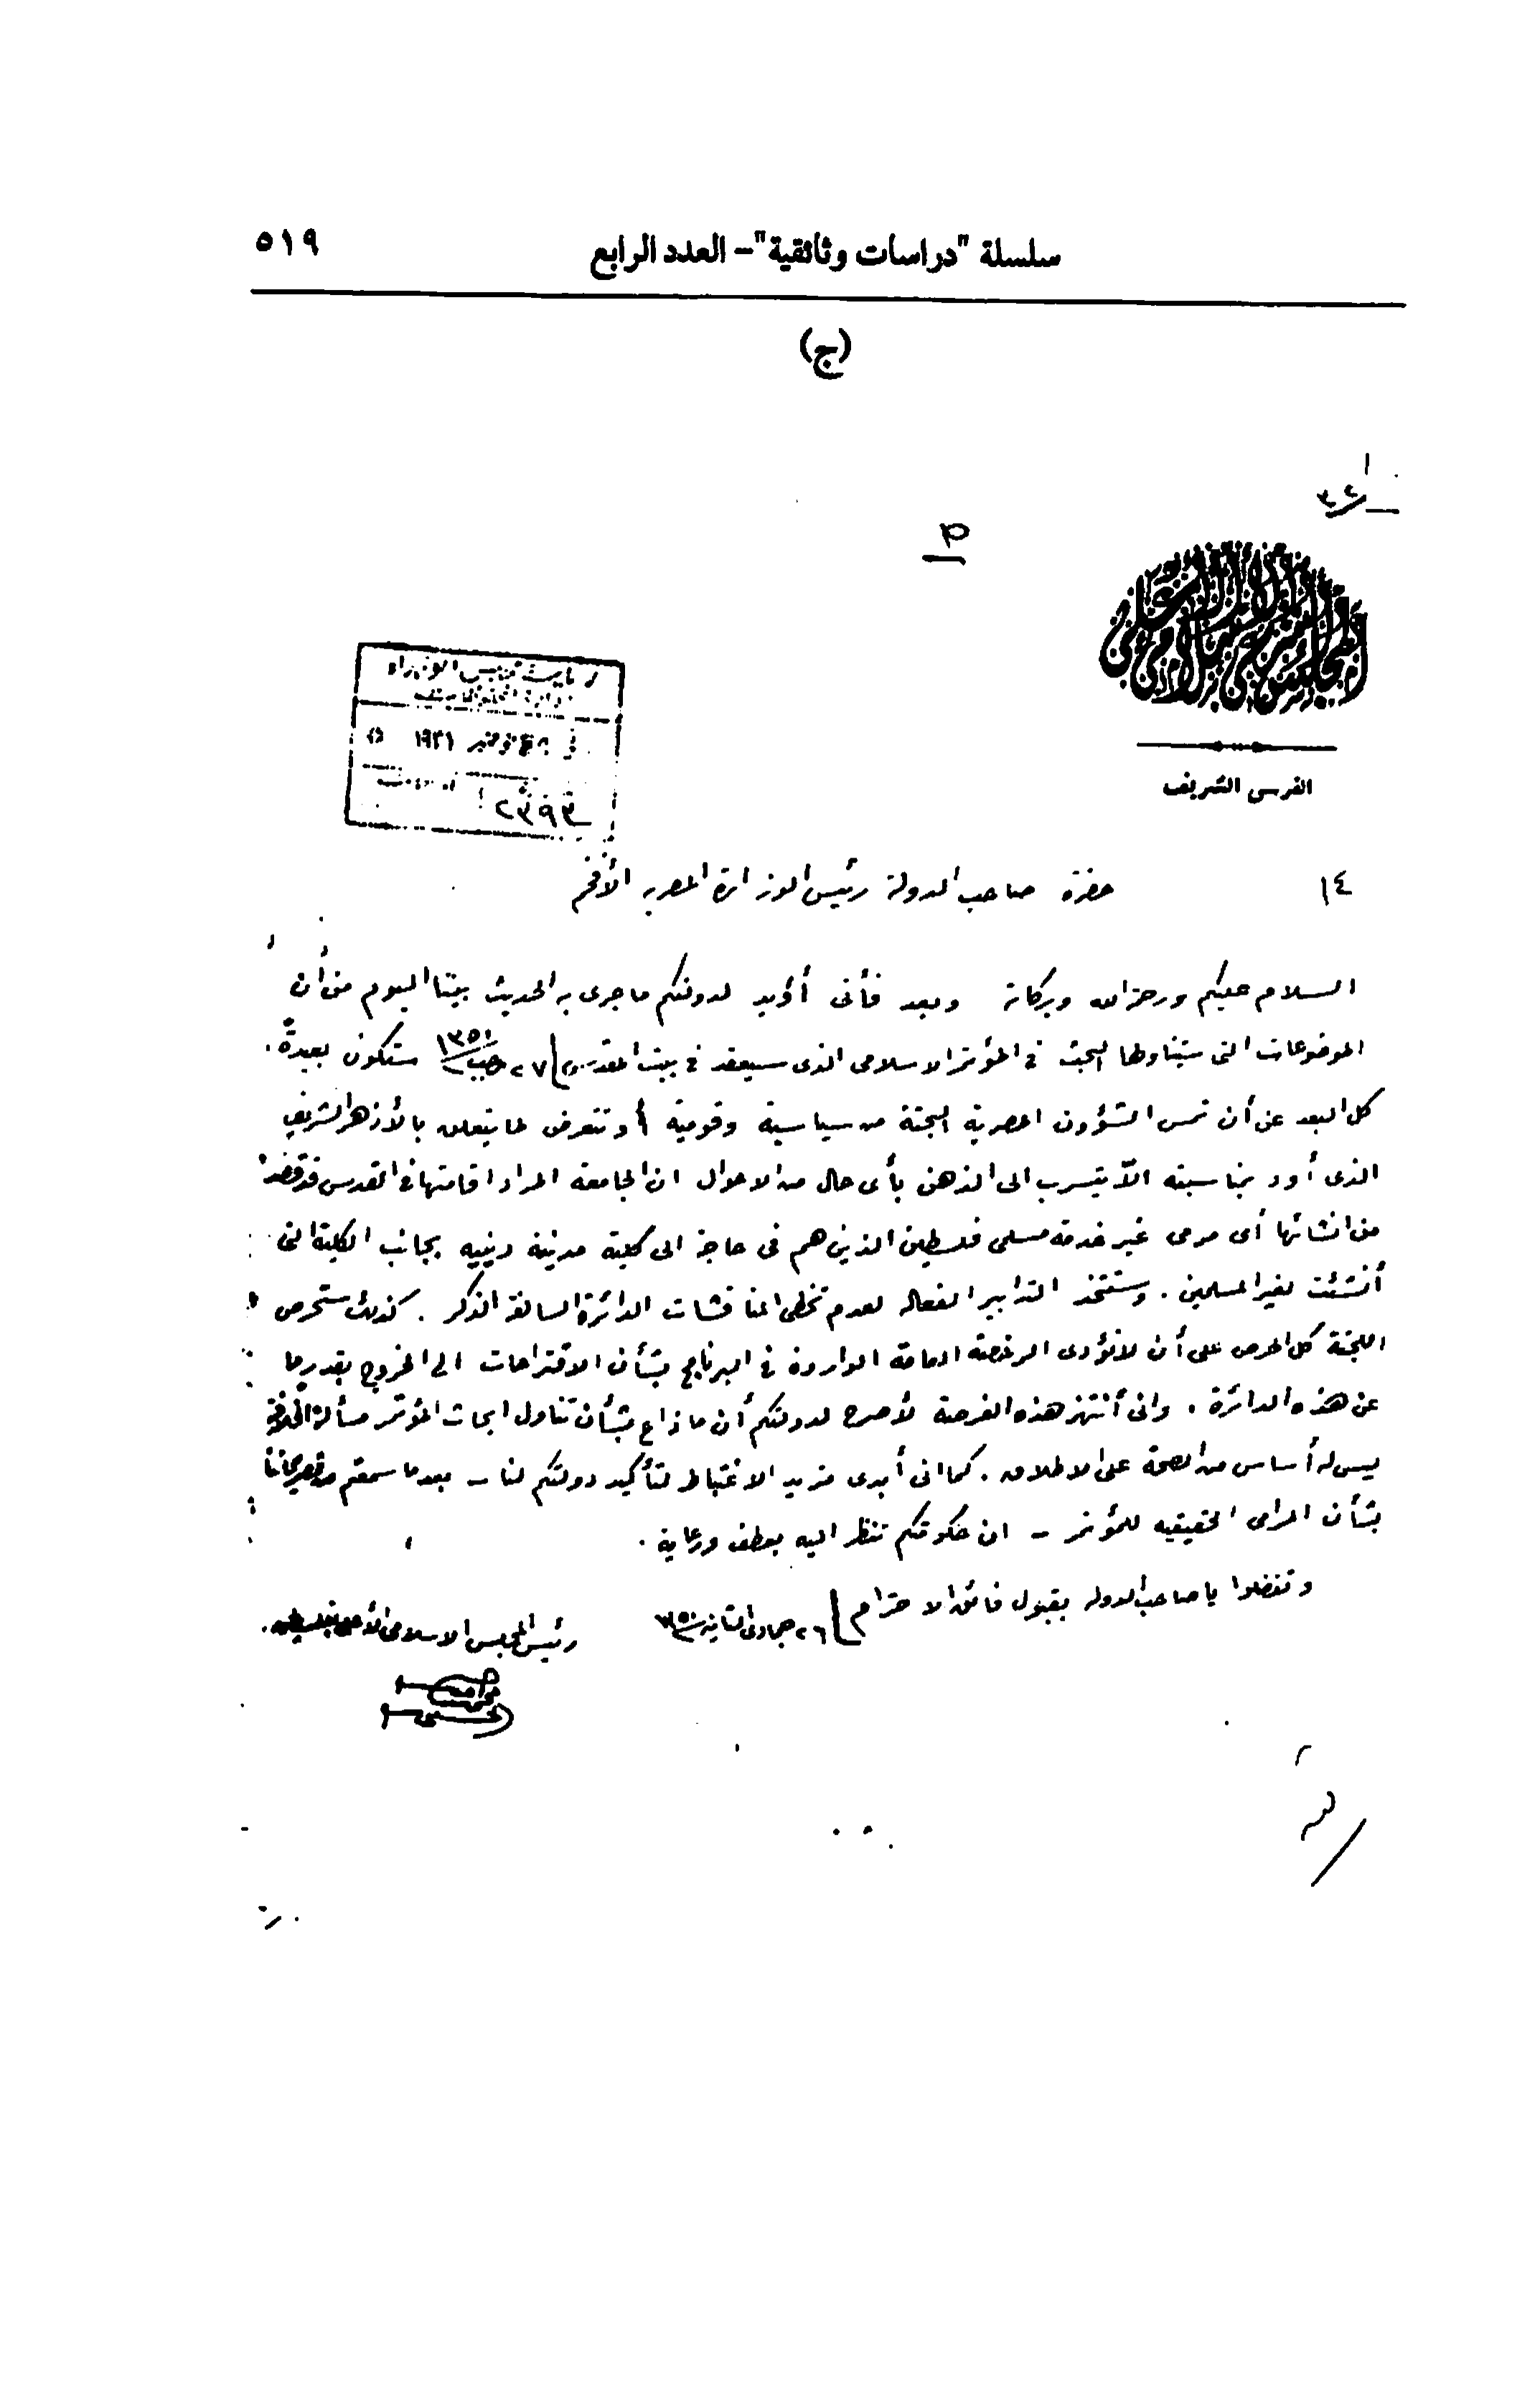 سلسلة "دراسات وثائقية" – العدد الرابع
٥١٩
(ج)
القدس الشريف
١٩٣١
٢٣٩٣
١٤
حضرة صاحب الدولة رئيس الوزارة المصريه الأفخم
السلام عليكم ورحمة الله وبركاته وبعد فأنى أؤيد لدولتكم ما جرى به الحديث بيننا اليوم من أن
الموضوعات التى سيتناولها البحث فى المؤتمر الاسلامى الذى سيعقد فى بيت المقدس ٢٧ رجب ١٣٥٠ ستكون بعيدة
كل البعد عن أن تمس الشؤون المصرية البحتة من سياسية وقومية أو تتعرض لما يتعلق بالأزهر الشريف
الذى أود بمناسبته الّا يتسرب الى الذهن بأى حال من الاحوال ان الجامعه المراد اقامتها فى القدس قد قصد
من انشائها أى مرمى غير خدمة مسلمى فلسطين الذين هم فى حاجة الى كلية مدنية دينيه بجانب الكلية التى
أنشئت لغير المسلمين . وستتخذ التدابير الفعاله لعدم تخطى المناقشات الدائرة السالفة الذكر . كذلك ستحرص
اللجنة كل الحرص على أن لا تؤدى الرخصة العامة الواردة فى البرنامج بشأن الاقتراحات الى الخروج بقدر ما
عن هذه الدائرة . وانى أنتهز هذه الفرصة لأصرح لدولتكم أن ما ذاع بشأن تناول ابحاث المؤتمر مسألة الخلافة
ليس له أساس من الصحة على الاطلاق . كما انى أبدى مزيد الاغتباط لتأكيد دولتكم لنا – بعد ما سمعتم من تصريحاتنا
بشأن المرامى الحقيقيه للمؤتمر – ان حكومتكم تنظر اليه بعطف ورعاية .
وتفضلوا يا صاحب الدوله بقبول فائق الاحترام ٢٦ جمادى الثانية ١٣٥٠
رئيس المجلس الاسلامى الأعلى بفلسطين
محمد امين
الحسينى